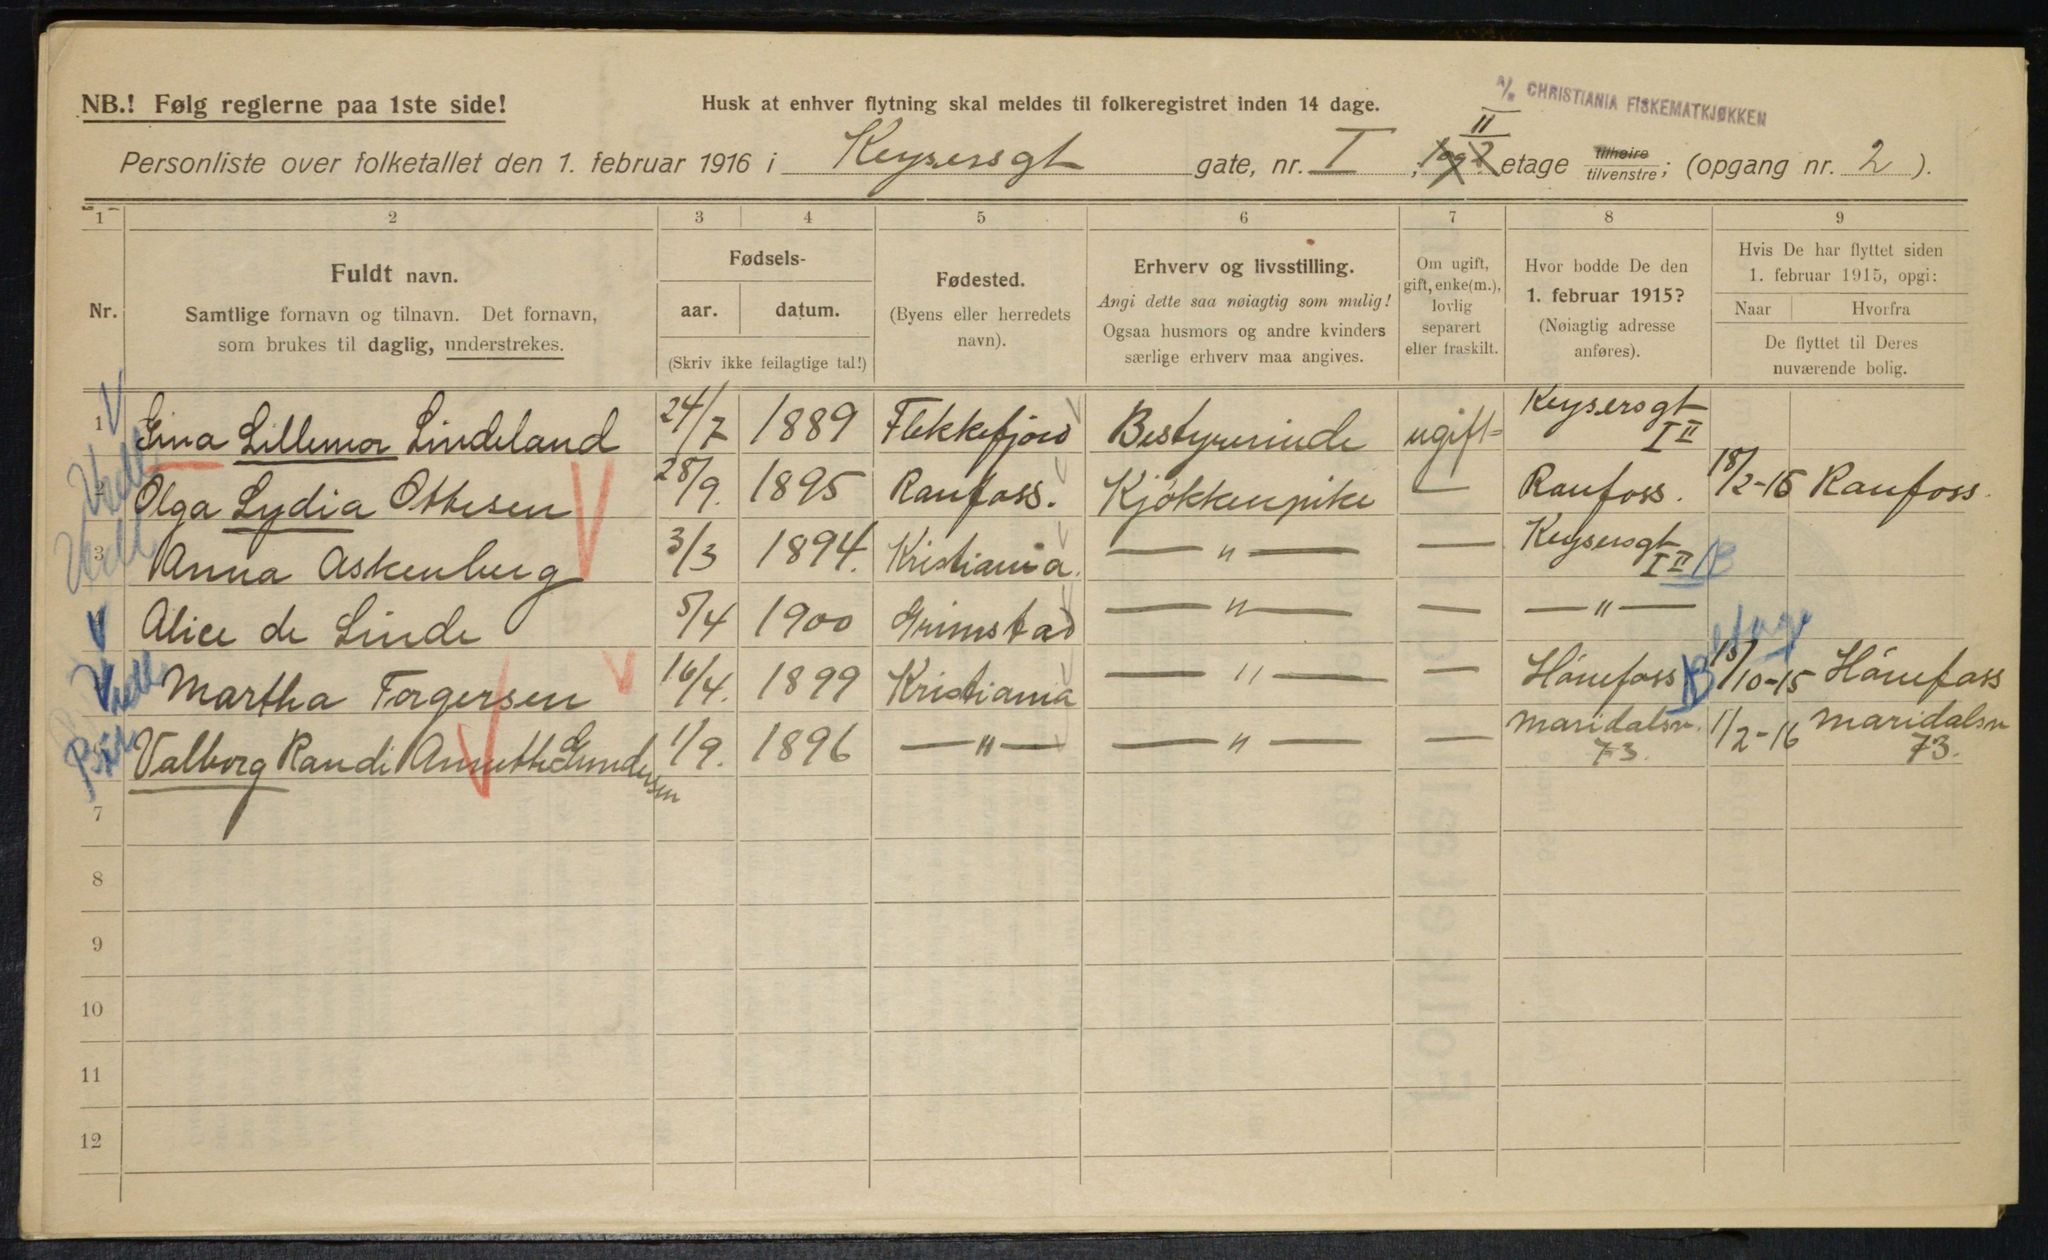 NB.! Følg reglerne paa 1ste side!
Husk at enhver flytning skal meldes til folkeregistret inden 14 dage.
A/S CHRISTIANIA FISKEMATKJØKKEN
II
Personliste over folketallet den 1. februar 1916 i Keysersgt gate, nr. I, etage tilhøire tilvenstre; (opgang nr. 2).
1 2 3 4 5 6 7 8 9
Nr.
Fuldt navn.
Samtlige fornavn og tilnavn. Det fornavn,
som brukes til daglig, understrekes.
Fødsels-
aar. datum.
(Skriv ikke feilagtige tal!)
Fødested.
(Byens eller herredets
navn).
Erhverv og livsstilling.
Angi dette saa nøiagtig som mulig!
Ogsaa husmors og andre kvinders
særlige erhverv maa angives.
Om ugift,
gift, enke(m.),
lovlig
separert
eller fraskilt.
Hvor bodde De den
1. februar 1915?
(Nøiagtig adresse
anføres).
Hvis De har flyttet siden
1. februar 1915, opgi:
Naar Hvorfra
De flyttet til Deres
nuværende bolig.
1 Gina Lillemor Lindeland 24/7 1889 Flekkefjord Bestyrerinde ugift Keysersgt I II
2 Olga Lydia Ottesen 28/9. 1895 Raufoss. Kjøkkenpike — Raufoss. 18/2-15 Raufoss.
3 Anna Askenberg 3/3 1894. Kristiania. — " — — Keysersgt I II
Alice de Linde 5/4 1900 Grimstad — " — — — " —
Martha Torgersen 16/4. 1899 Kristiania — " — — Hönefoss B 15/10-15 Hönefoss
Valborg Randi Annethe Gundersen 1/9. 1896 — " — — " — — Maridalsv. 73. 1/2-16 Maridalsv 73.
7
8
9
10
11
12